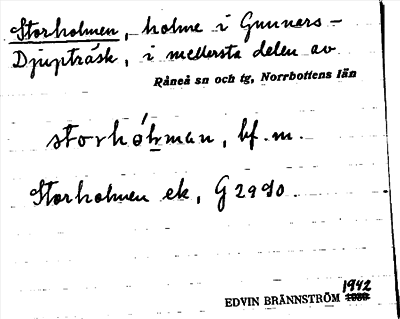 Storholmen, holme i Gunners-
Djupträsk, i mellersta delen av
Råneå sn och tg, Norrbottens län
storhólman, bf. m.
Storholmen ek, G 2990.
1942
EDVIN BRÄNNSTRÖM